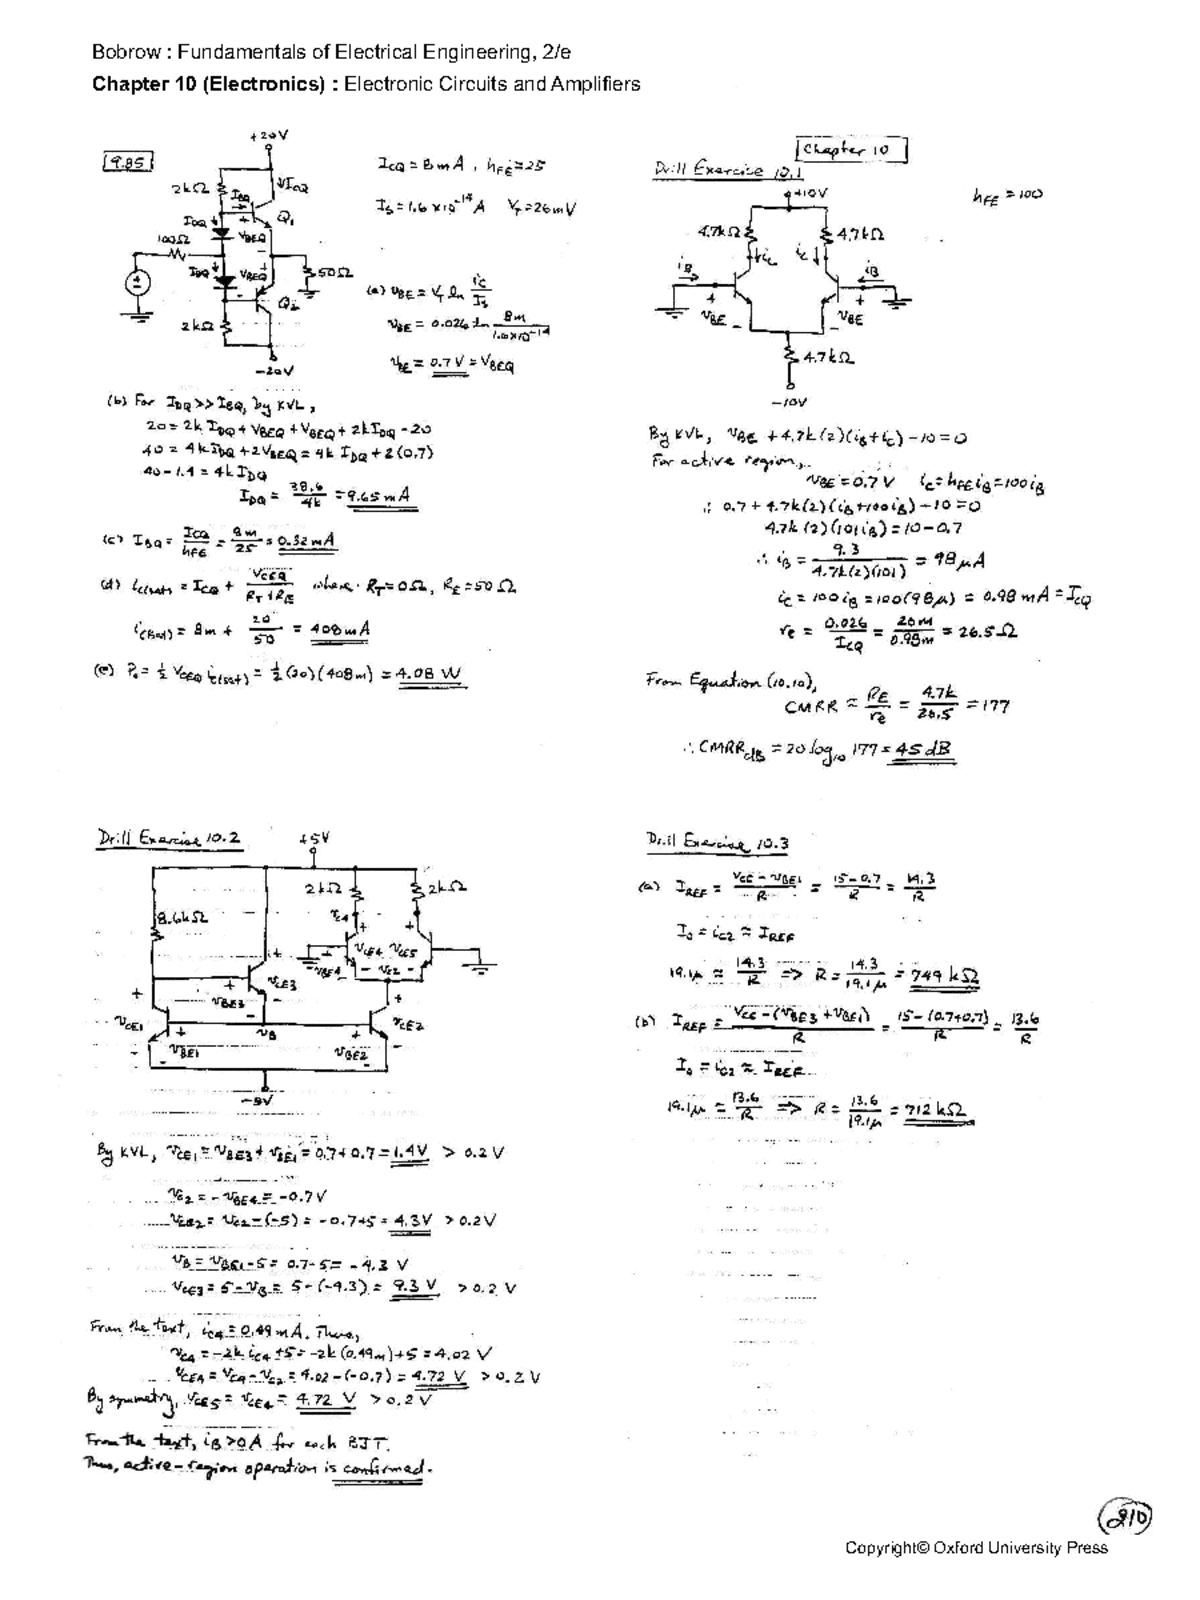 Bobrow : Fundamentals of Electrical Engineering, 2/e
Chapter 10 (Electronics) : Electronic Circuits and Amplifiers
9.85
+20V
2kΩ
IBQ
↓ICQ
Q1
IDQ
VBEQ
100Ω
IDQ
VBEQ
50Ω
Q2
2kΩ
-20V
ICQ = 8mA, hFE = 25
IS = 1.6×10^-14 A VT = 26mV
(a) vBE = VT ln iC/IS
vBE = 0.026 ln 8m/1.6×10^-14
vBE = 0.7V = VBEQ
(b) For IDQ >> IBQ, by KVL,
20 = 2k IDQ + VBEQ + VBEQ + 2k IDQ - 20
40 = 4k IDQ + 2VBEQ = 4k IDQ + 2(0.7)
40 - 1.4 = 4k IDQ
IDQ = 38.6/4k = 9.65 mA
(c) IBQ = ICQ/hFE = 8m/25 = 0.32 mA
(d) iC(sat) = ICQ + VCEQ/(RT+RE) where RT = 0Ω, RE = 50Ω
iC(sat) = 8m + 20/50 = 408 mA
(e) Po = 1/2 VCEQ iC(sat) = 1/2 (20)(408m) = 4.08 W
Chapter 10
Drill Exercise 10.1
+10V
hFE = 100
4.7kΩ
4.7kΩ
↓iC
iC↓
iB
iB
vBE
vBE
4.7kΩ
-10V
By KVL, vBE + 4.7k(2)(iB+iC) - 10 = 0
For active region,
vBE = 0.7V iC = hFE iB = 100iB
∴ 0.7 + 4.7k(2)(iB+100iB) - 10 = 0
4.7k(2)(101iB) = 10 - 0.7
∴ iB = 9.3/4.7k(2)(101) = 98 μA
iC = 100iB = 100(98μ) = 0.98 mA = ICQ
re = 0.026/ICQ = 26m/0.98m = 26.5Ω
From Equation (10.10),
CMRR ≈ RE/re = 4.7k/26.5 = 177
∴ CMRRdB = 20 log10 177 = 45 dB
Drill Exercise 10.2
+5V
2kΩ
2kΩ
8.6kΩ
vC4
vCE4
vCE5
vBE4
vC2
vCE3
vBE3
vCE1
vB
vCE2
vBE1
vBE2
By KVL, vCE1 = vBE3 + vBE1 = 0.7 + 0.7 = 1.4V > 0.2V
vC2 = -vBE4 = -0.7V
vCE2 = vC2 - (-5) = -0.7+5 = 4.3V > 0.2V
vB = vBE1 - 5 = 0.7 - 5 = -4.3 V
vCE3 = 5 - vB = 5 - (-4.3) = 9.3 V > 0.2 V
From the text, iC4 = 0.49 mA. Thus,
vC4 = -2k iC4 + 5 = -2k(0.49m) + 5 = 4.02 V
vCE4 = vC4 - vC2 = 4.02 - (-0.7) = 4.72 V > 0.2 V
By symmetry, vCE5 = vCE4 = 4.72 V > 0.2 V
From the text, iB > 0A for each BJT.
Thus, active-region operation is confirmed.
Drill Exercise 10.3
(a) IREF = (VCC - vBE1)/R = (15 - 0.7)/R = 14.3/R
Io = iC2 ≈ IREF
19.1μ ≈ 14.3/R => R = 14.3/19.1μ = 749 kΩ
(b) IREF = (VCC - (vBE3 + vBE1))/R = (15 - (0.7+0.7))/R = 13.6/R
Io = iC2 ≈ IREF
19.1μ = 13.6/R => R = 13.6/19.1μ = 712 kΩ
210
Copyright© Oxford University Press